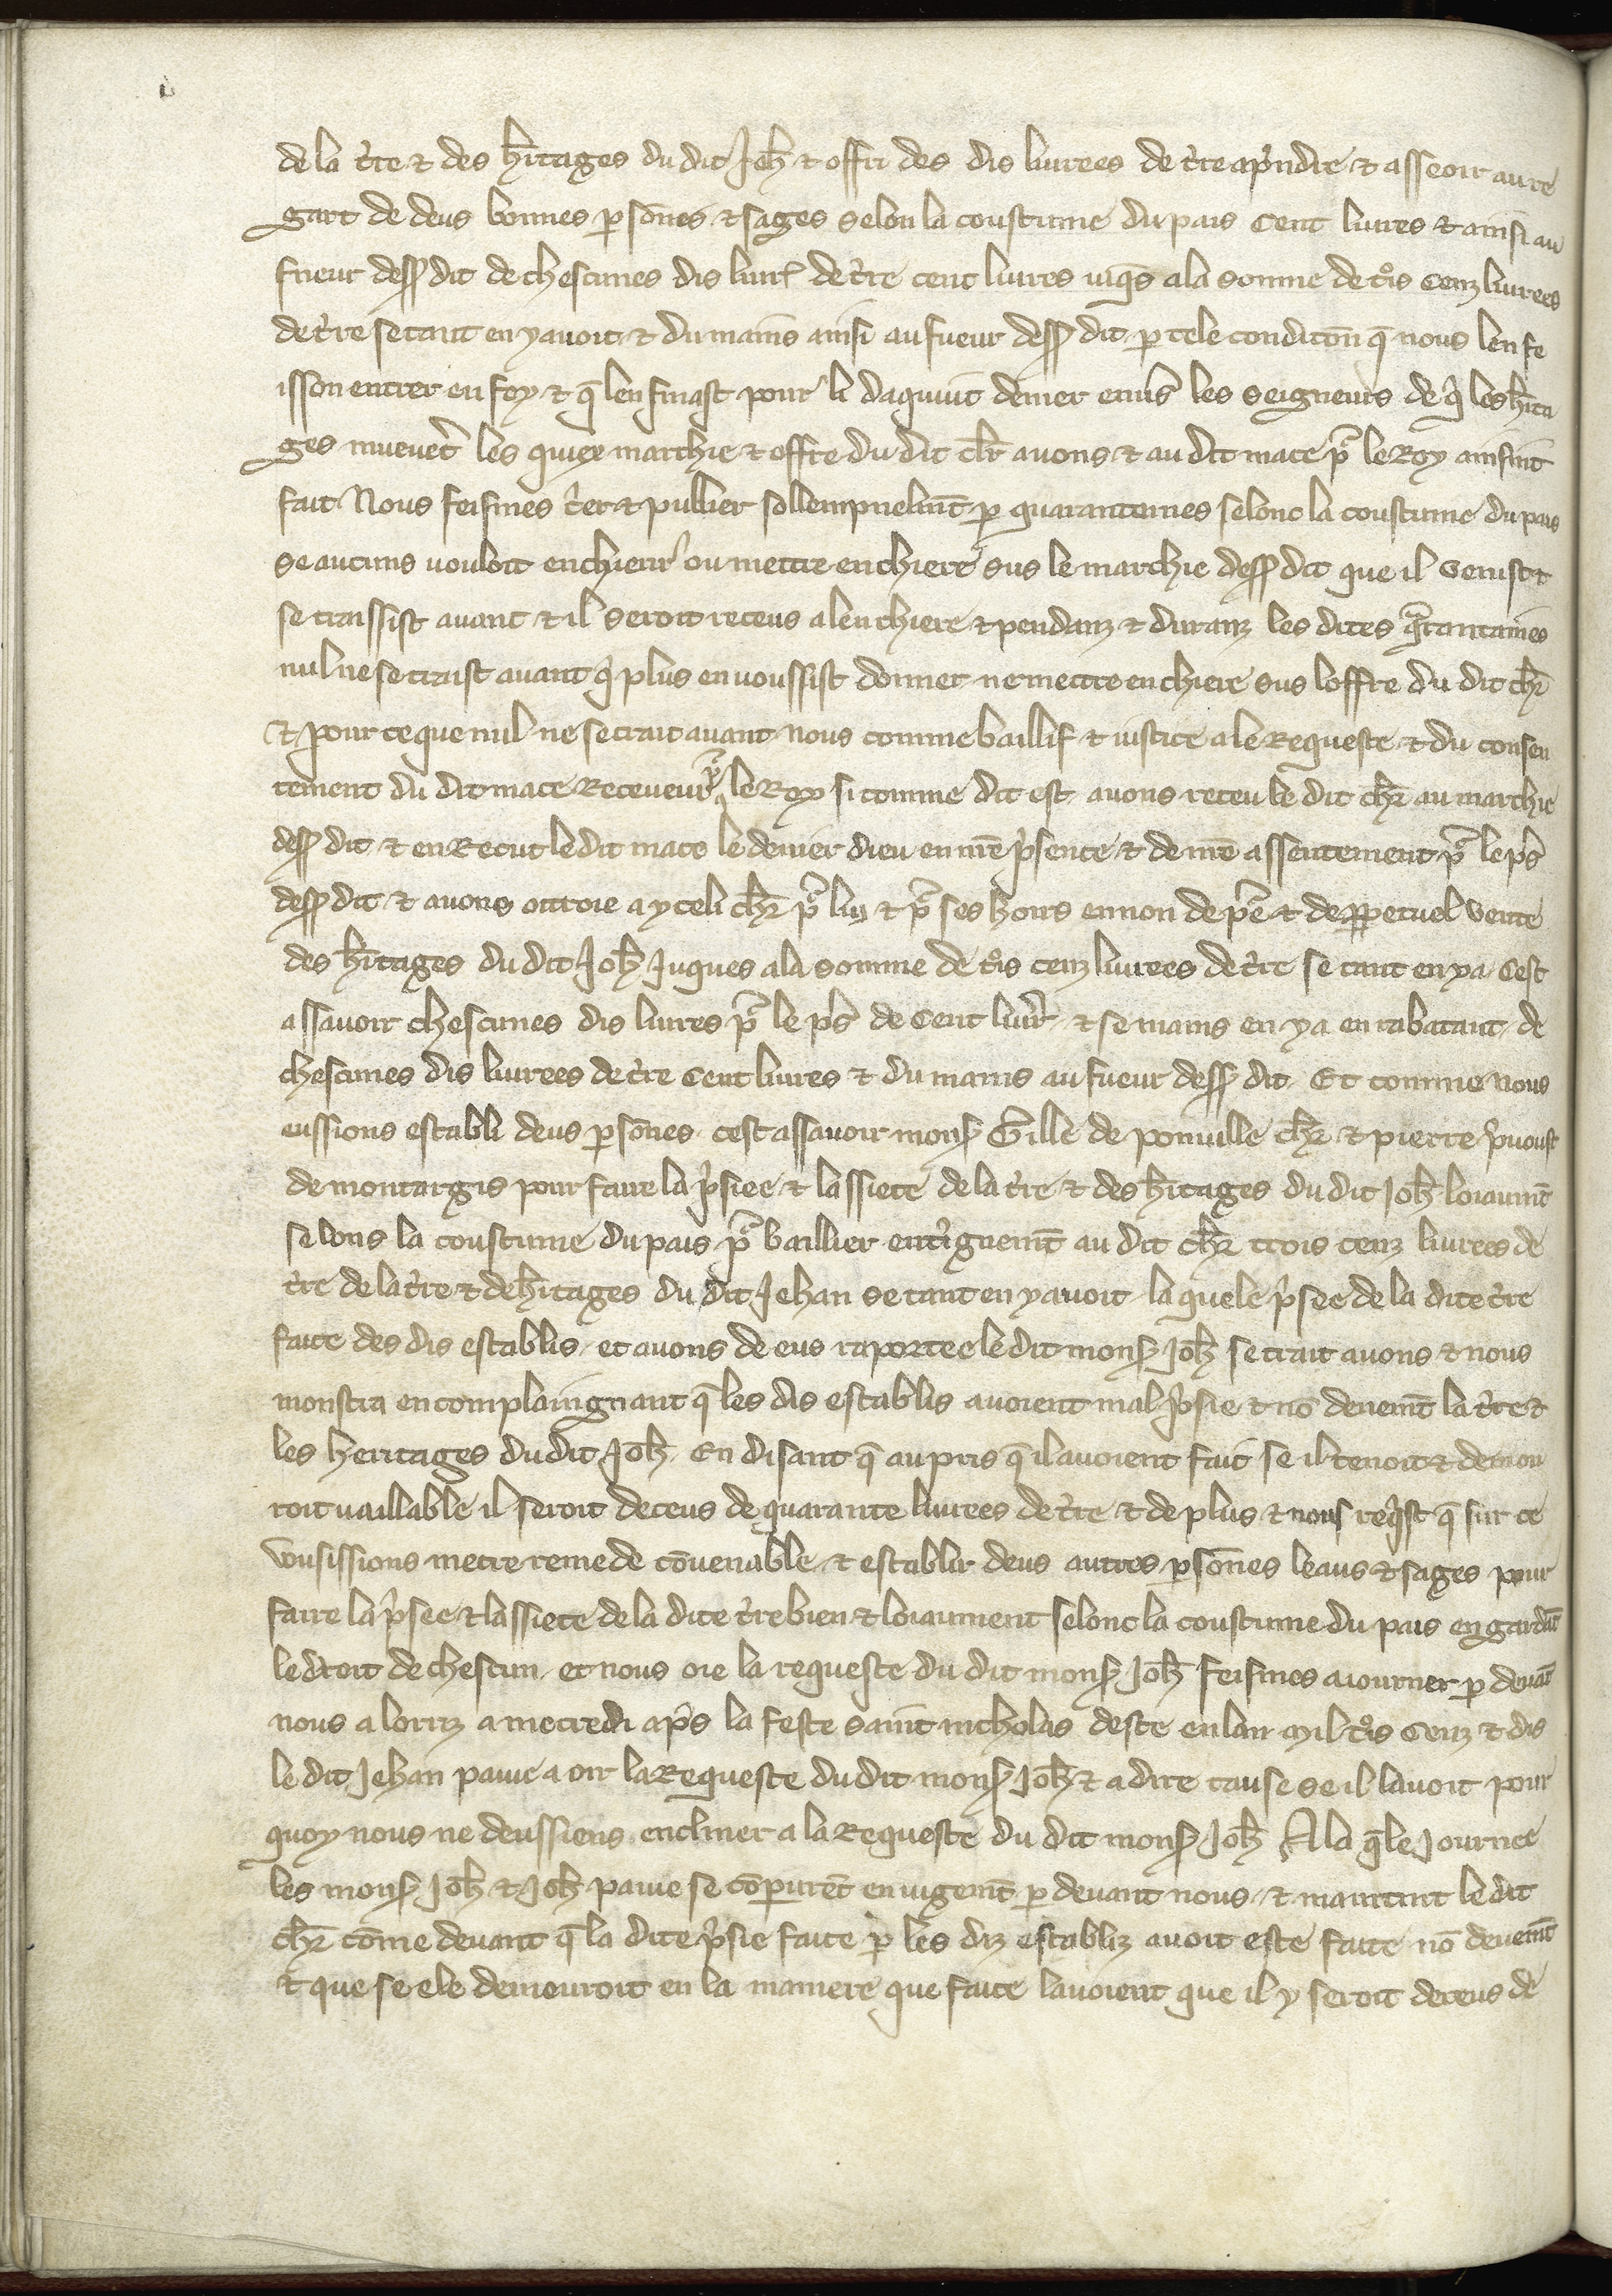 de la t̃re ⁊ des h̃itages du dit Jeh̃ ⁊ offri des dis liurees de t̃re a p̃ndre ⁊ asseoir au re
gart de deus bonnes ꝑsoñes ⁊ sages selon la coustume du pais Cent liures ⁊ ainsi au
fueur dess̃ dit de chescunes dis liur̃ de t̃re cent liures iuq̃s a la somme de t°is Cenz liurees
de t̃re se tant en y auoit ⁊ du mains ainsi au fueur dess̃ dit ꝑ tele condicõn q̃ nous len fe
isson entrer en foy ⁊ q̃ len finast pour li daquint denier enu̾s les seigneurs de q̾ les h̃ita
ges mueuẽt les quiex marchie ⁊ offre du dit ch̾r auons ⁊ au dit mace p̃ le Roy ainsint
fait Nous feismes c̾er ⁊ pullier sollempnelm̃t ꝑ quarantenes selonc la coustume du pais
se aucuns vouloit encherir ou mettre enchiere sus le marchie dess̃ dit que il venist ⁊
se traissist auant ⁊ il seroit receus a lenchiere ⁊ pendanz ⁊ duranz les dites q̃rantaines
nul ne se traist auant q̾ plus en voussist donner ne mettre enchiere sus loffre du dit ch̾r
⁊ pour ce que nul ne se trait auant nous comme baillif ⁊ iustice a le Requeste ⁊ du consen
tement du dit mace Receueur p̃ le Roy si comme dit est auons receu le dit ch̾r au marchie
dess̃ dit ⁊ en Recut le dit mace le denier dieu en nr̃e p̾sence ⁊ de nr̃e assentement p̃ le p̾s
dess̃ dit ⁊ auons ottroie a yceli ch̾r p̃ luy ⁊ p̃ ses hoirs en non de p̃e ⁊ de ꝑpetuel vente
des h̃itages du dit Joh̃ Juques a la somme de t°is cenz liurees de t̃re se tant en y a Cest
assauoir chescunes dis liures p̃ le p̾s de Cent liur̃ ⁊ se mains en y a en rabatant de
chescunes dis liurees de t̃re Cent liures ⁊ du mains au fueur dess̃ dit Et comme nous
eussions establi deus ꝑsoñes cest assauoir mons̃ Gille de ponuille ch̾r ⁊ pierre p̾uoust
de montargis pour faire la p̾siee ⁊ lassiete de la t̃re ⁊ des h̃itages du dit Joh̃ loiaum̃t
selons la coustume du pais p̃ baillier ent̾ignem̃t au dit ch̾r trois cenz liurees de
t̃re de la t̃re ⁊ de h̃itages du dit Jehan se tant en y auoit la quele p̾see de la dite t̃re
faite des dis establis et auons de eus raportee le dit mons̃ Joh̃ se trait auons ⁊ nous
monstra en complaingnant q̃ les dis establis auoient mal p̾sie ⁊ nõ deuem̃t la t̃re ⁊
les heritages du dit Joh̃ En disant q̃ au pris q̃ il auoient fait se il tenoit ⁊ demou
roit vaillable il seroit deceus de quarante liurees de t̃re ⁊ de plus ⁊ nous req̾st q̃ sur ce
vousissions metre remede cõuenable ⁊ establir deus autres ꝑsoñes leaus ⁊ sages pour
faire la p̾see ⁊ lassiete de la dite t̃re bien ⁊ loiaument selonc la coustume du pais en gardãt
le droit de chescun et nous oie la requeste du dit mons̃ Joh̃ feismes aiourner ꝑ deuãt
nous a lorriz a mecredi ap̾s la feste saint nicholas deste en lan mil t°is Cenz ⁊ dis
le dit Jehan pauie a oir la Requeste du dit mons̃ Joh̃ ⁊ a dire cause se il lauoit pour
quoy nous ne deussiens encliner a la Requeste du dit mons̃ Joh̃ A la q̃le Journee
les mons̃ Joh̃ ⁊ Joh̃ pauie se cõparurẽt en iugem̃t ꝑ deuant nous ⁊ maintint le dit
ch̾r cõme deuant q̃ la dite p̾sie faite ꝑ les diz establiz auoit este faite nõ deuem̃t
⁊ que se ele demouroit en la maniere que faite lauoient que il y seroit deceus de